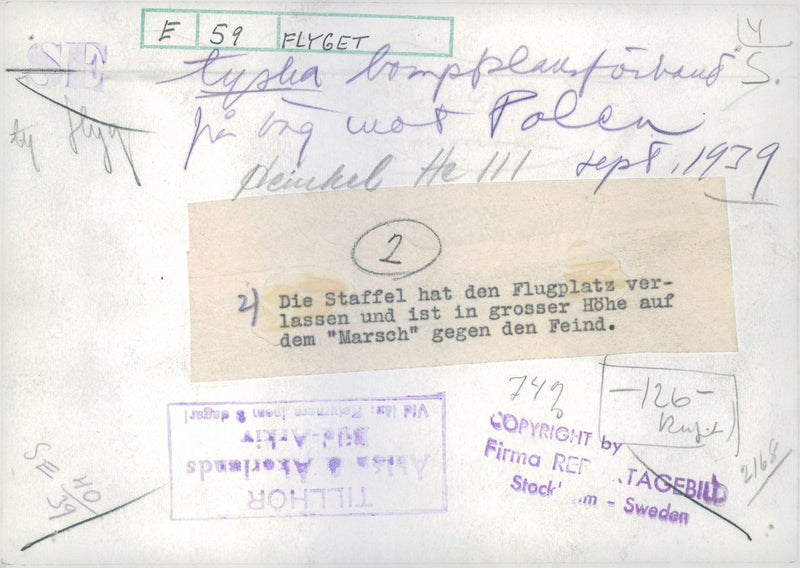 E 59 FLYGET
4
S.
SE
tyska bombplansförband
på väg mot Polen
ty flyg
Heinkel He 111 sept. 1939
2
2) Die Staffel hat den Flugplatz ver-
lassen und ist in grosser Höhe auf
dem "Marsch" gegen den Feind.
TILLHÖR
Åhlén & Åkerlunds
Bild-Arkiv
Vid lån: Returnera inom 8 dagar!
742
-126-
COPYRIGHT by
Firma REP TAGEBILD
Stock m - Sweden
2168
SE 40
39